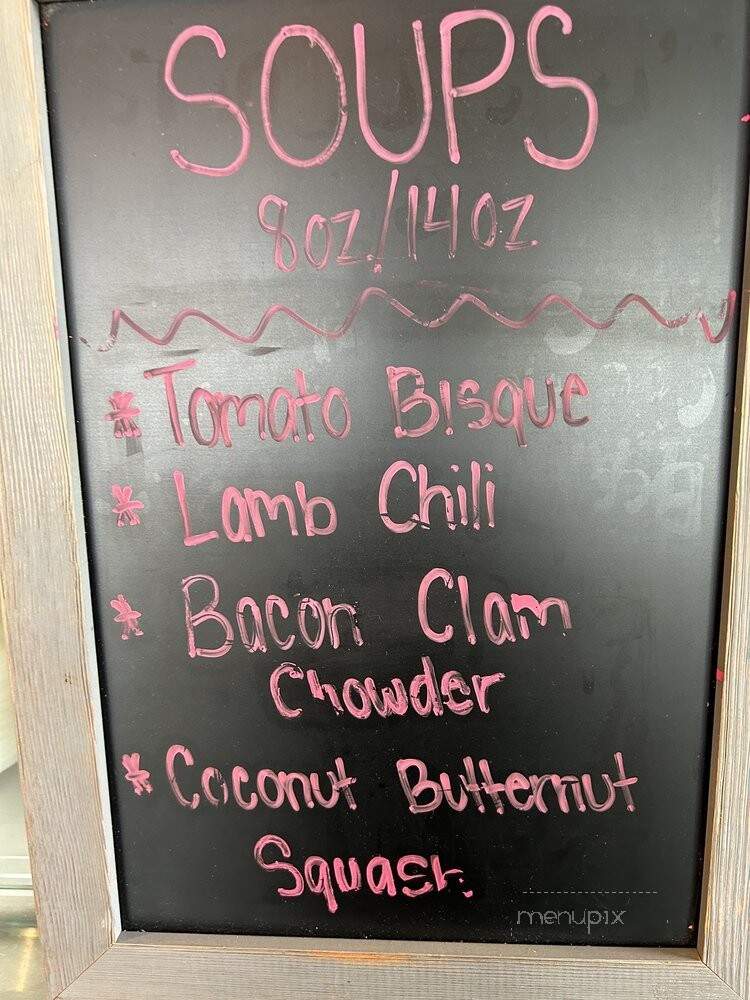 SOUPS
8oz/14oz
* Tomato Bisque
* Lamb Chili
* Bacon Clam
Chowder
* Coconut Butternut
Squash
menupix